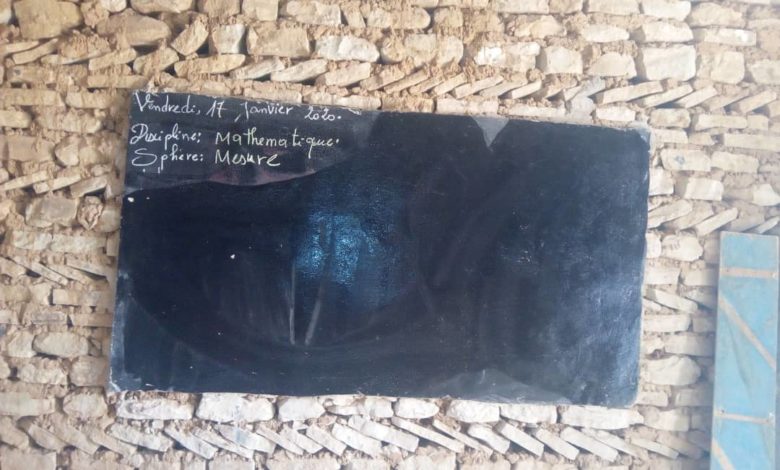 Vendredi, 17, Janvier 2020.
Discipline: Mathematique.
Sphère: Mesure